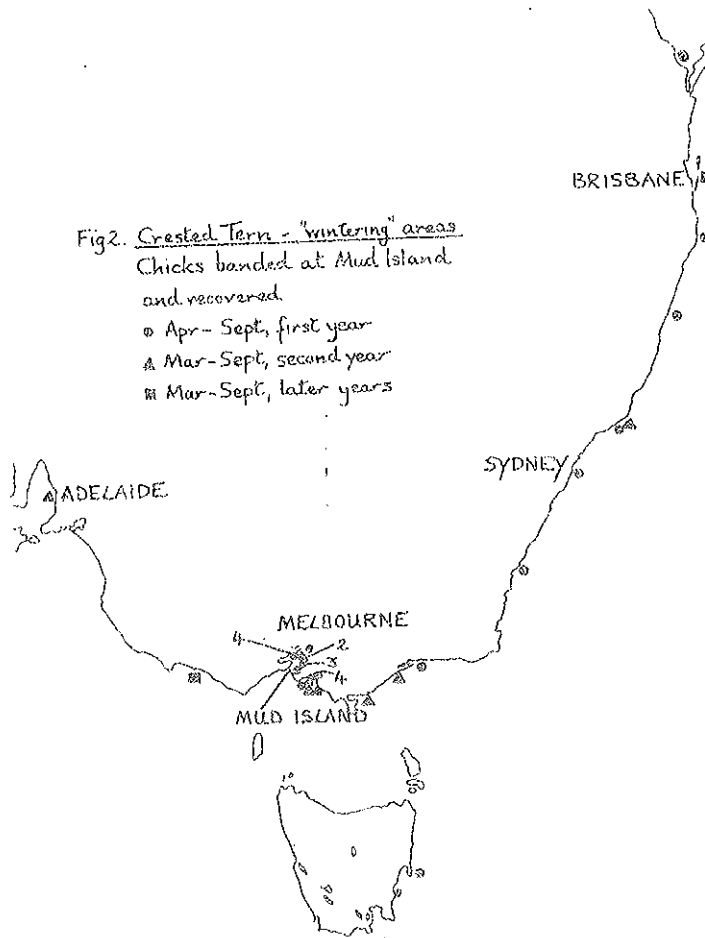 Fig2. Crested Tern - "wintering" areas
Chicks banded at Mud Island
and recovered
Apr-Sept, first year
Mar-Sept, second year
Mar-Sept, later years
BRISBANE
SYDNEY
ADELAIDE
MELBOURNE
4
2
3
4
MUD ISLAND